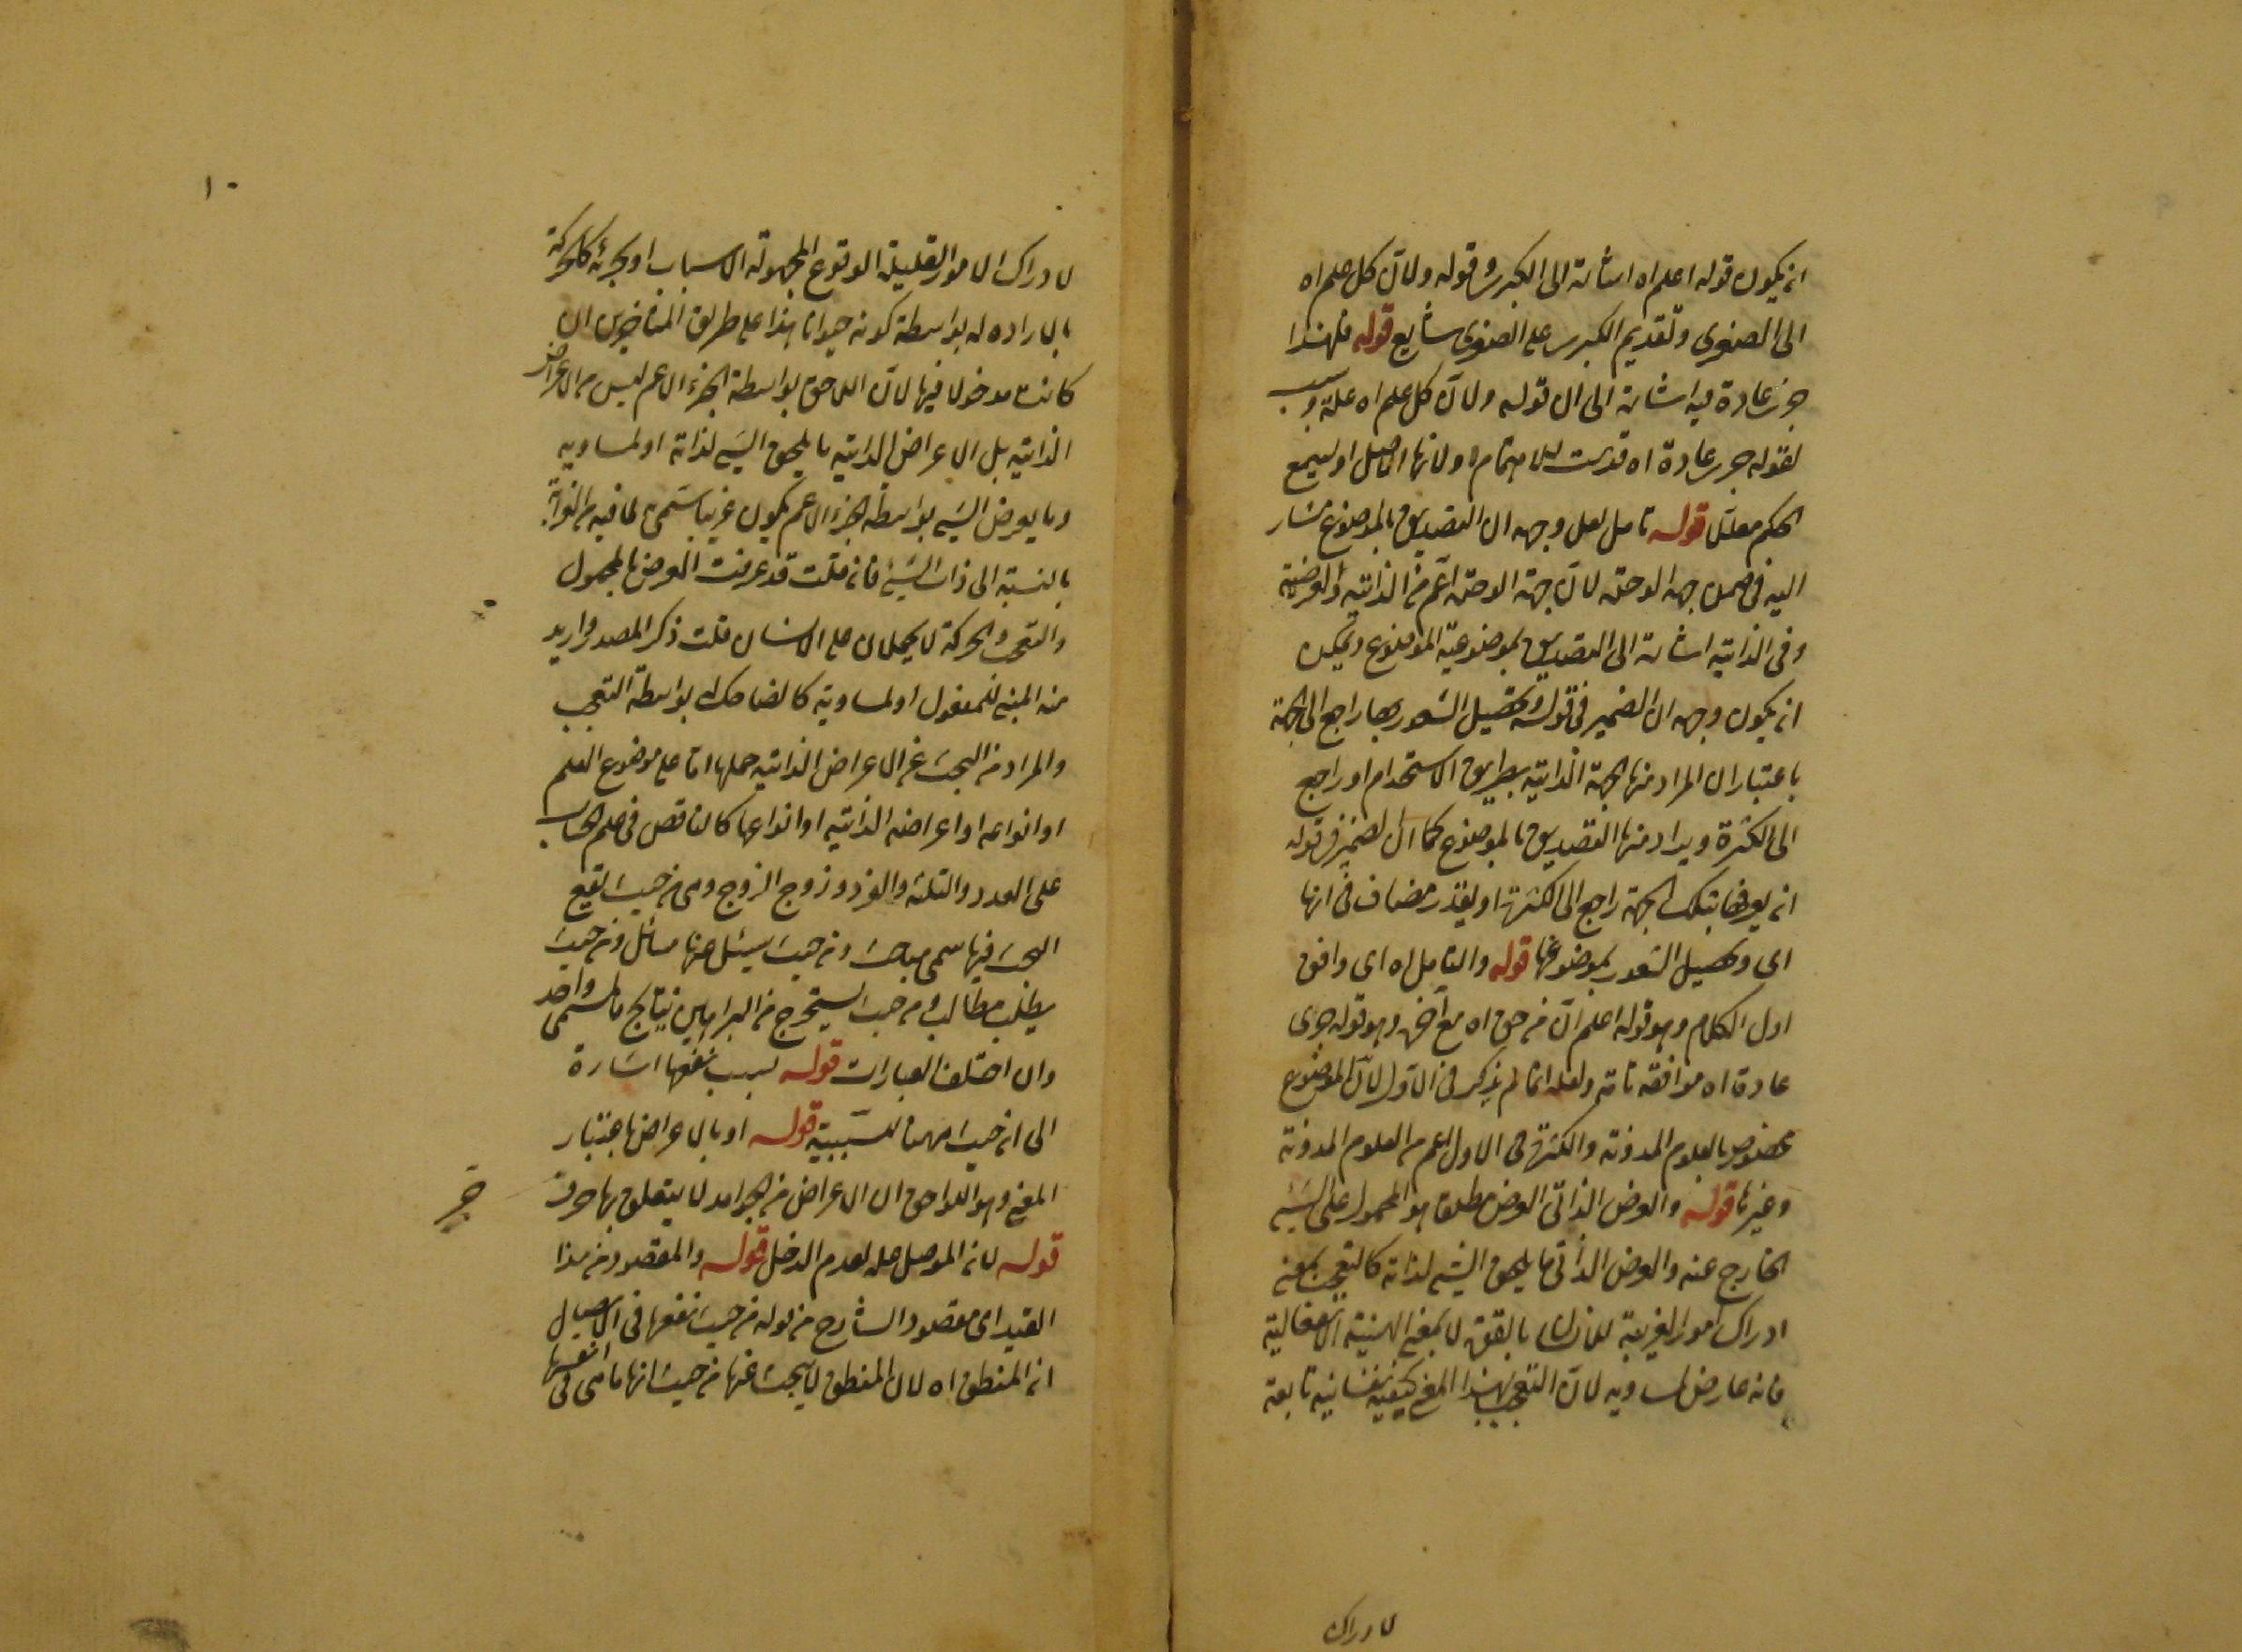 ان يكون قوله اعلم اه اشارة الى الكبرى وقوله ولان كل علم اه
الى الصغرى وتقديم الكبرى على الصغرى شايع قوله فلهذا
جرت عادة فيه اشارة الى ان قوله ولان كل علم اه علة
لقوله جرت عادة اه قدمت للاهتمام او لانها الاصل او ليسمع
الحكم معللا قوله تامل لعل وجهه ان التصديق بالموضوع مشار
اليه في ضمن جهة الوحدة لان جهة الوحدة اعم من الذاتية والعرضية
وفي الذاتية اشارة الى التصديق بموضوعية الموضوع ويمكن
ان يكون وجهه ان الضمير في قوله وتحصيل الشعور بها راجع الى الجهة
باعتبار ان المراد منها الجهة الذاتية بطريق الاستخدام او راجع
الى الكثرة ويراد منها التصديق بالموضوع كما ان الضمير في قوله
ان يعرفها بتلك الجهة راجع الى الكثرة او يقدر مضاف في انها
اى وتحصيل الشعور بموضوعها قوله والتامل اه اى وافق
اول الكلام وهو قوله اعلم ان من حق اه مع آخره وهو قوله جرى
عادة اه موافقة تامة ولعله انما لم يذكر في الاول لان الموضوع
مخصوص بالعلوم المدونة والكثرة في الاول اعم من العلوم المدونة
وغيرها قوله والعرض الذاتى العرض مطلقا هو المحمول على الشيء
الخارج عنه والعرض الذاتى ما يلحق الشيء لذاته كالتعجب بمعنى
ادراك امور الغريبة للانسان بالقوة لا بمعنى الهيئة الانفعالية
فانه عارض لمساويه لان التعجب بهذا المعنى كيفية نفسانية تابعة
لادراك
١٠
لادراك الامور القليلة الوقوع المجهولة الاسباب او بجزئه كالحركة
بالارادة له بواسطة كونه حيوانا هذا على طريق المتاخرين ان
كانت مدخولا فيها لان اللاحق بواسطة الجزء الاعم ليس من الاعراض
الذاتية بل الاعراض الذاتية ما يلحق الشيء لذاته او لمساويه
وما يعرض الشيء بواسطة الجزء الاعم يكون غريبا سمى لما فيه من الغرابة
بالنسبة الى ذات الشيء فان قلت قد عرفت العرض بالمحمول
والتعجب والحركة لا يحملان على الانسان قلت ذكر المصدر واريد
منه المبنى للمفعول او لمساويه كالضاحك له بواسطة التعجب
والمراد من البحث عن الاعراض الذاتية حملها اما على موضوع العلم
او انواعه او اعراضه الذاتية او انواعها كالناقص في علم الحساب
على العدد والثلثة والفرد وزوج الزوج وهى من حيث يقع
البحث فيها سمى مباحث ومن حيث يسئل عنها مسائل ومن حيث
يطلب مطالب ومن حيث يستخرج من البراهين نتايج فالمسمى واحد
وان اختلف العبارات قوله بسبب نفعها اشارة
الى ان حيث ههنا للسببية قوله او بالاعراض باعتبار
المعنى وهو اللواحق ان الاعراض من الجوامد لا يتعلق بها حرف
جر
قوله لانه الموصل علة لعدم الدخل قوله والمقصود من هذا
القيد اى مقصود الشارح من قوله من حيث نفعها في الايصال
ان المنطق اه لان المنطق لا يبحث عنها من حيث انها ماهى في انفسها